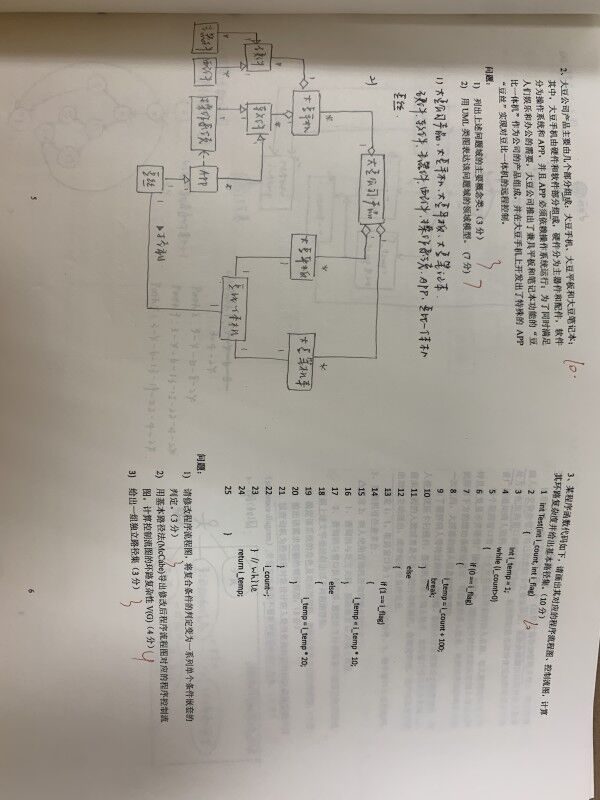 2、大豆公司产品主要由几个部分组成:大豆手机、大豆平板和大豆笔记本;
其中,大豆手机由硬件和软件部分组成,硬件分为主器件和配件,软件
分为操作系统和 APP,并且 APP 必须依赖操作系统运行;为了同时满足
人们娱乐和办公的需要,大豆公司推出了兼具平板和笔记本功能的“豆
比一体机”作为公司的产品组成,并在大豆手机上开发出了特殊的 APP
“豆丝”实现对豆比一体机的远程控制。
10.
问题:
1) 列出上述问题域的主要概念类。(3 分)
3
2) 用 UML 类图表达该问题域的领域模型。(7 分)
7
1) 大豆公司产品、大豆手机、大豆平板、大豆笔记本、
硬件、软件、主器件、配件、操作系统、APP、豆比一体机
豆丝.
2)
大豆公司产品
大豆手机
大豆平板
大豆笔记本
硬件
软件
主器件
配件
操作系统
APP
豆比一体机
豆丝
5
3、某程序函数代码如下,请画出其对应的程序流程图、控制流图,计算
其环路复杂度并给出基本路径集。(10 分)
1 int Test(int i_count, int i_flag)
2 {
3 int i_temp = 1;
4 while (i_count>0)
5 {
6 if (0 == i_flag)
7 {
8 i_temp = i_count + 100;
9 break;
10 }
11 else
12 {
13 if (1 == i_flag)
14 {
15 i_temp = i_temp * 10;
16 }
17 else
18 {
19 i_temp = i_temp * 20;
20 }
21 }
22 i_count--;
23 } // while
24 return i_temp;
25 }
问题:
1) 请修改程序流程图,将复合条件的判定变为一系列单个条件嵌套的
判定。(3 分)
3
2) 用基本路径法(McCabe)导出修改后程序流程图对应的程序控制流
图,计算控制流图的环路复杂性 V(G)(4 分)
4
3) 给出一组独立路径集(3 分)
3
6